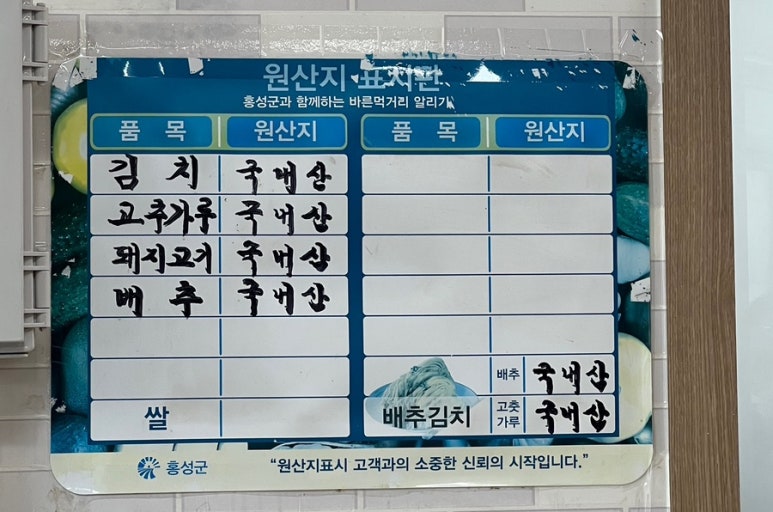 원산지 표시판
홍성군과 함께하는 바른먹거리 알리기
품 목 원산지 품 목 원산지
김 치 국내산
고추가루 국내산
돼지고기 국내산
배 추 국내산
배추 국내산
쌀 배추김치 고춧가루 국내산
홍성군 "원산지표시 고객과의 소중한 신뢰의 시작입니다."